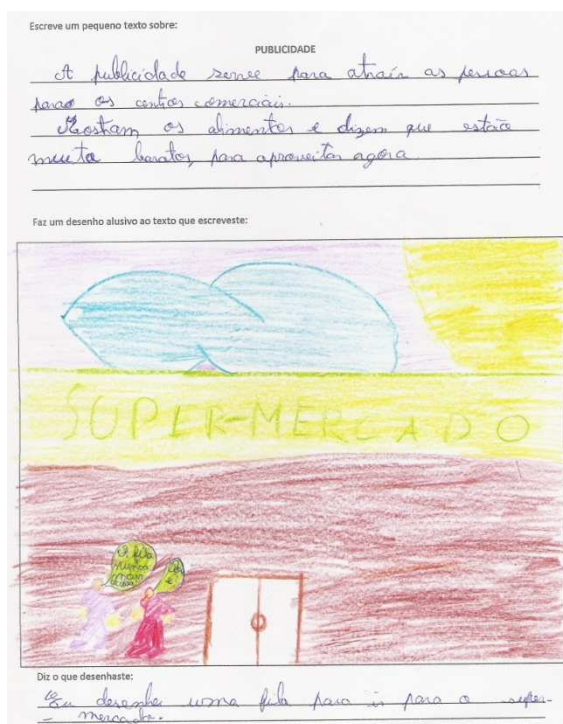 Escreve um pequeno texto sobre:
PUBLICIDADE
A publicidade serve para atrair as pessoas
para os centros comerciais.
Mostram os alimentos e dizem que estão
muito baratos, para aproveitar agora
Faz um desenho alusivo ao texto que escreveste:
SUPER-MERCADO
A fila
nunca
mais
Diz o que desenhaste:
Eu desenhei uma fila para ir para o super-
- mercado.